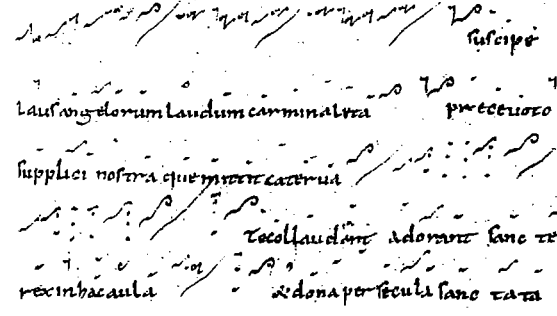 suscipe
laus angelorum laudum carmina leta prece uoto
supplici nostra que mittit caterua
te collaudant adorant sanc te
rex in hac aula & dona per secula sanc ta ta